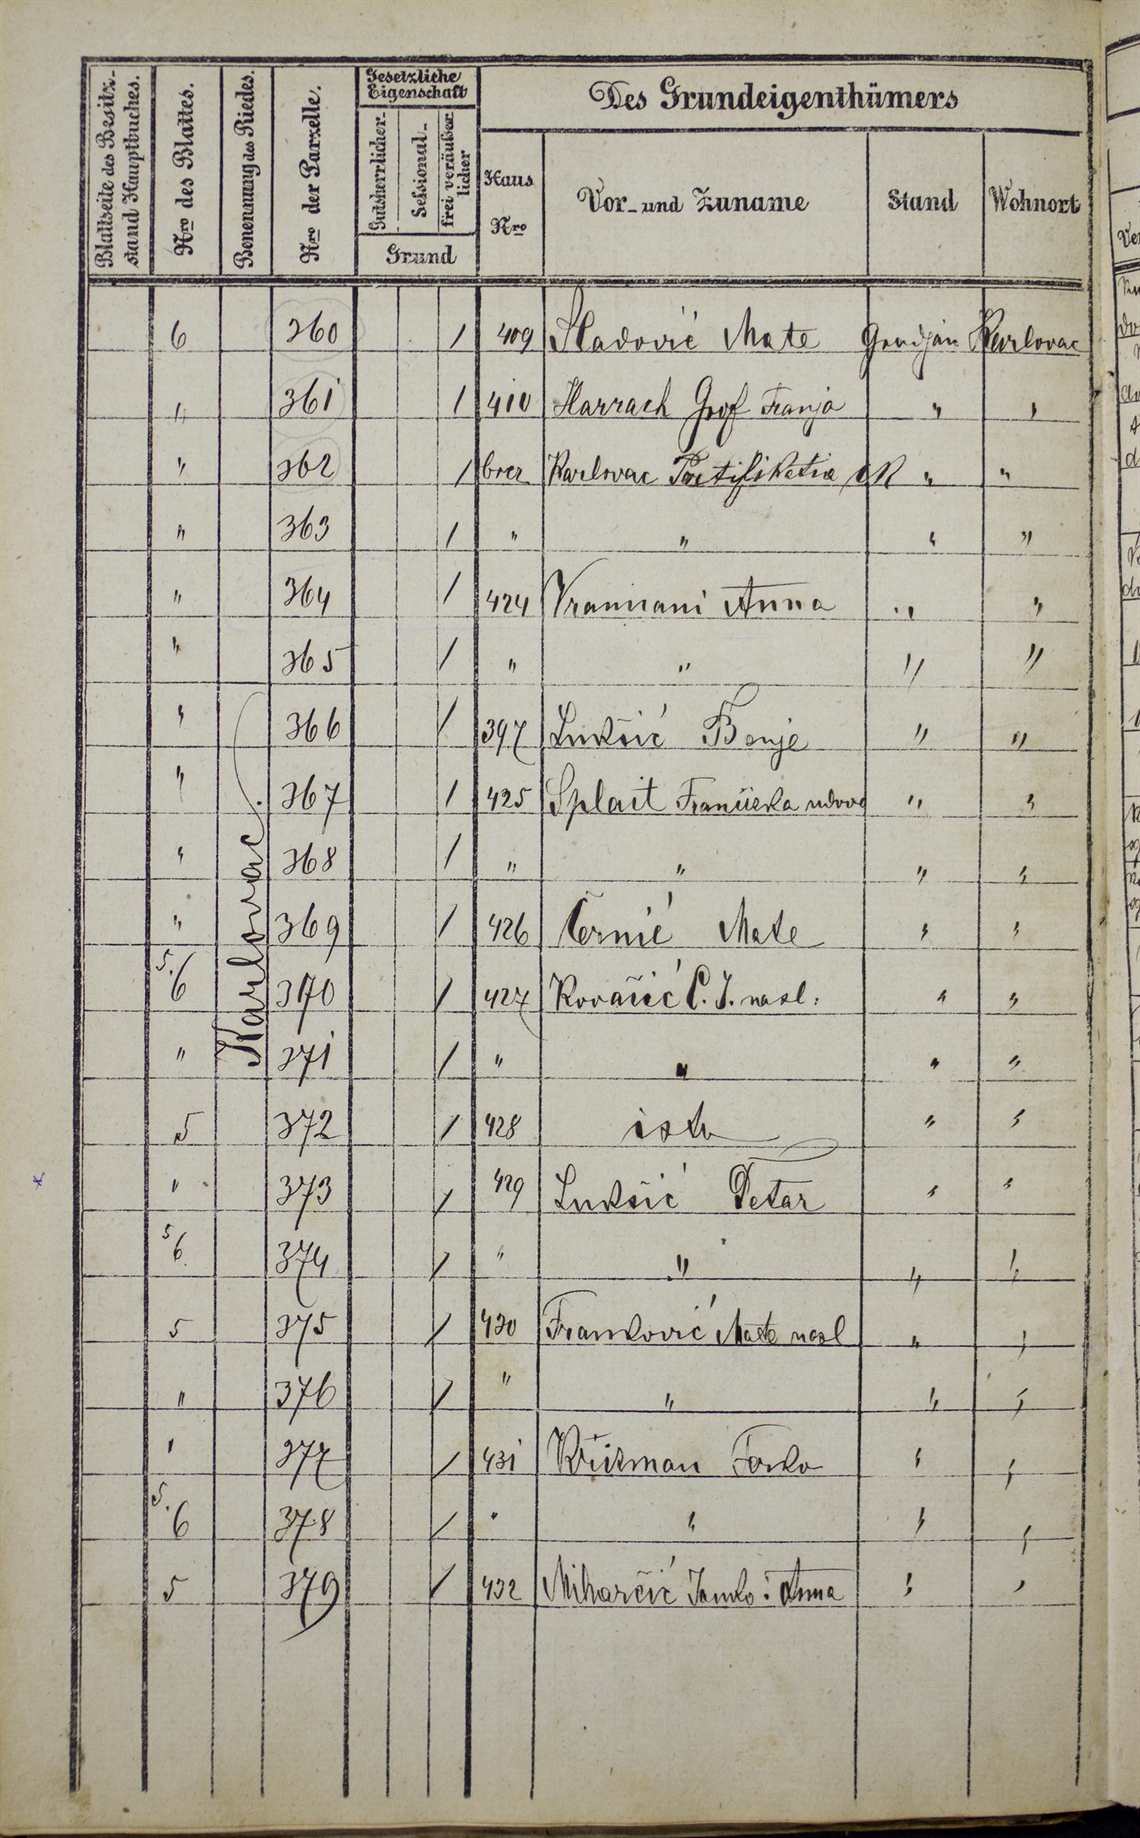 Blattseite des Besitz-
stand Hauptbuches.
Nro des Blattes.
Benennung des Riedes.
Nro der Parzelle.
Gesetzliche
Eigenschaft
Gutsherrlicher
Sessional-
frei veräußer
licher
Grund
Des Grundeigenthümers
Haus
Nro
Vor- und Zuname
Stand
Wohnort
Karlovac.
6 360 / 409 Sladović Mate Gradjan Karlovac
" 361 / 410 Harrach Grof Franjo " "
" 362 / brez Karlovac " "
" 363 / " " " "
" 364 / 424 Vranicani Anna " "
" 365 / " " " "
" 366 / 397 Lukšić " "
" 367 / 425 Splait udova " "
" 368 / " " " "
" 369 / 426 Černić Mate " "
5. 6 370 / 427 Kovačić C. J. nasl: " "
" 371 / " " " "
5 372 / 428 isti " "
" 373 / 429 Lukšić Petar " "
5 6 374 / " " " "
5 375 / 430 Franković Mate nasl " "
" 376 / " " " "
" 377 / 431 Križman " "
5. 6 378 / " " " "
5 379 / 432 Miharčić Janko i Anna " "